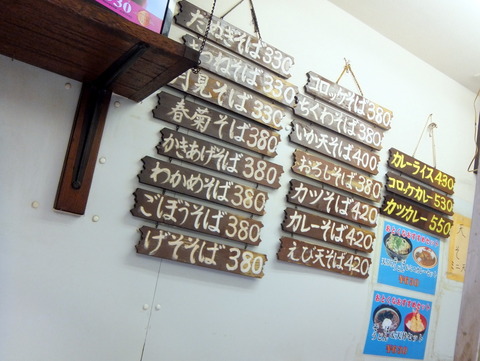 たぬきそば330
きつねそば330
月見そば330
春菊そば380
かきあげそば380
わかめそば380
ごぼうそば380
げそそば380
コロッケそば380
ちくわそば380
いか天そば400
おろしそば380
カツそば420
カレーそば420
えび天そば420
カレーライス430
コロッケカレー530
カツカレー550